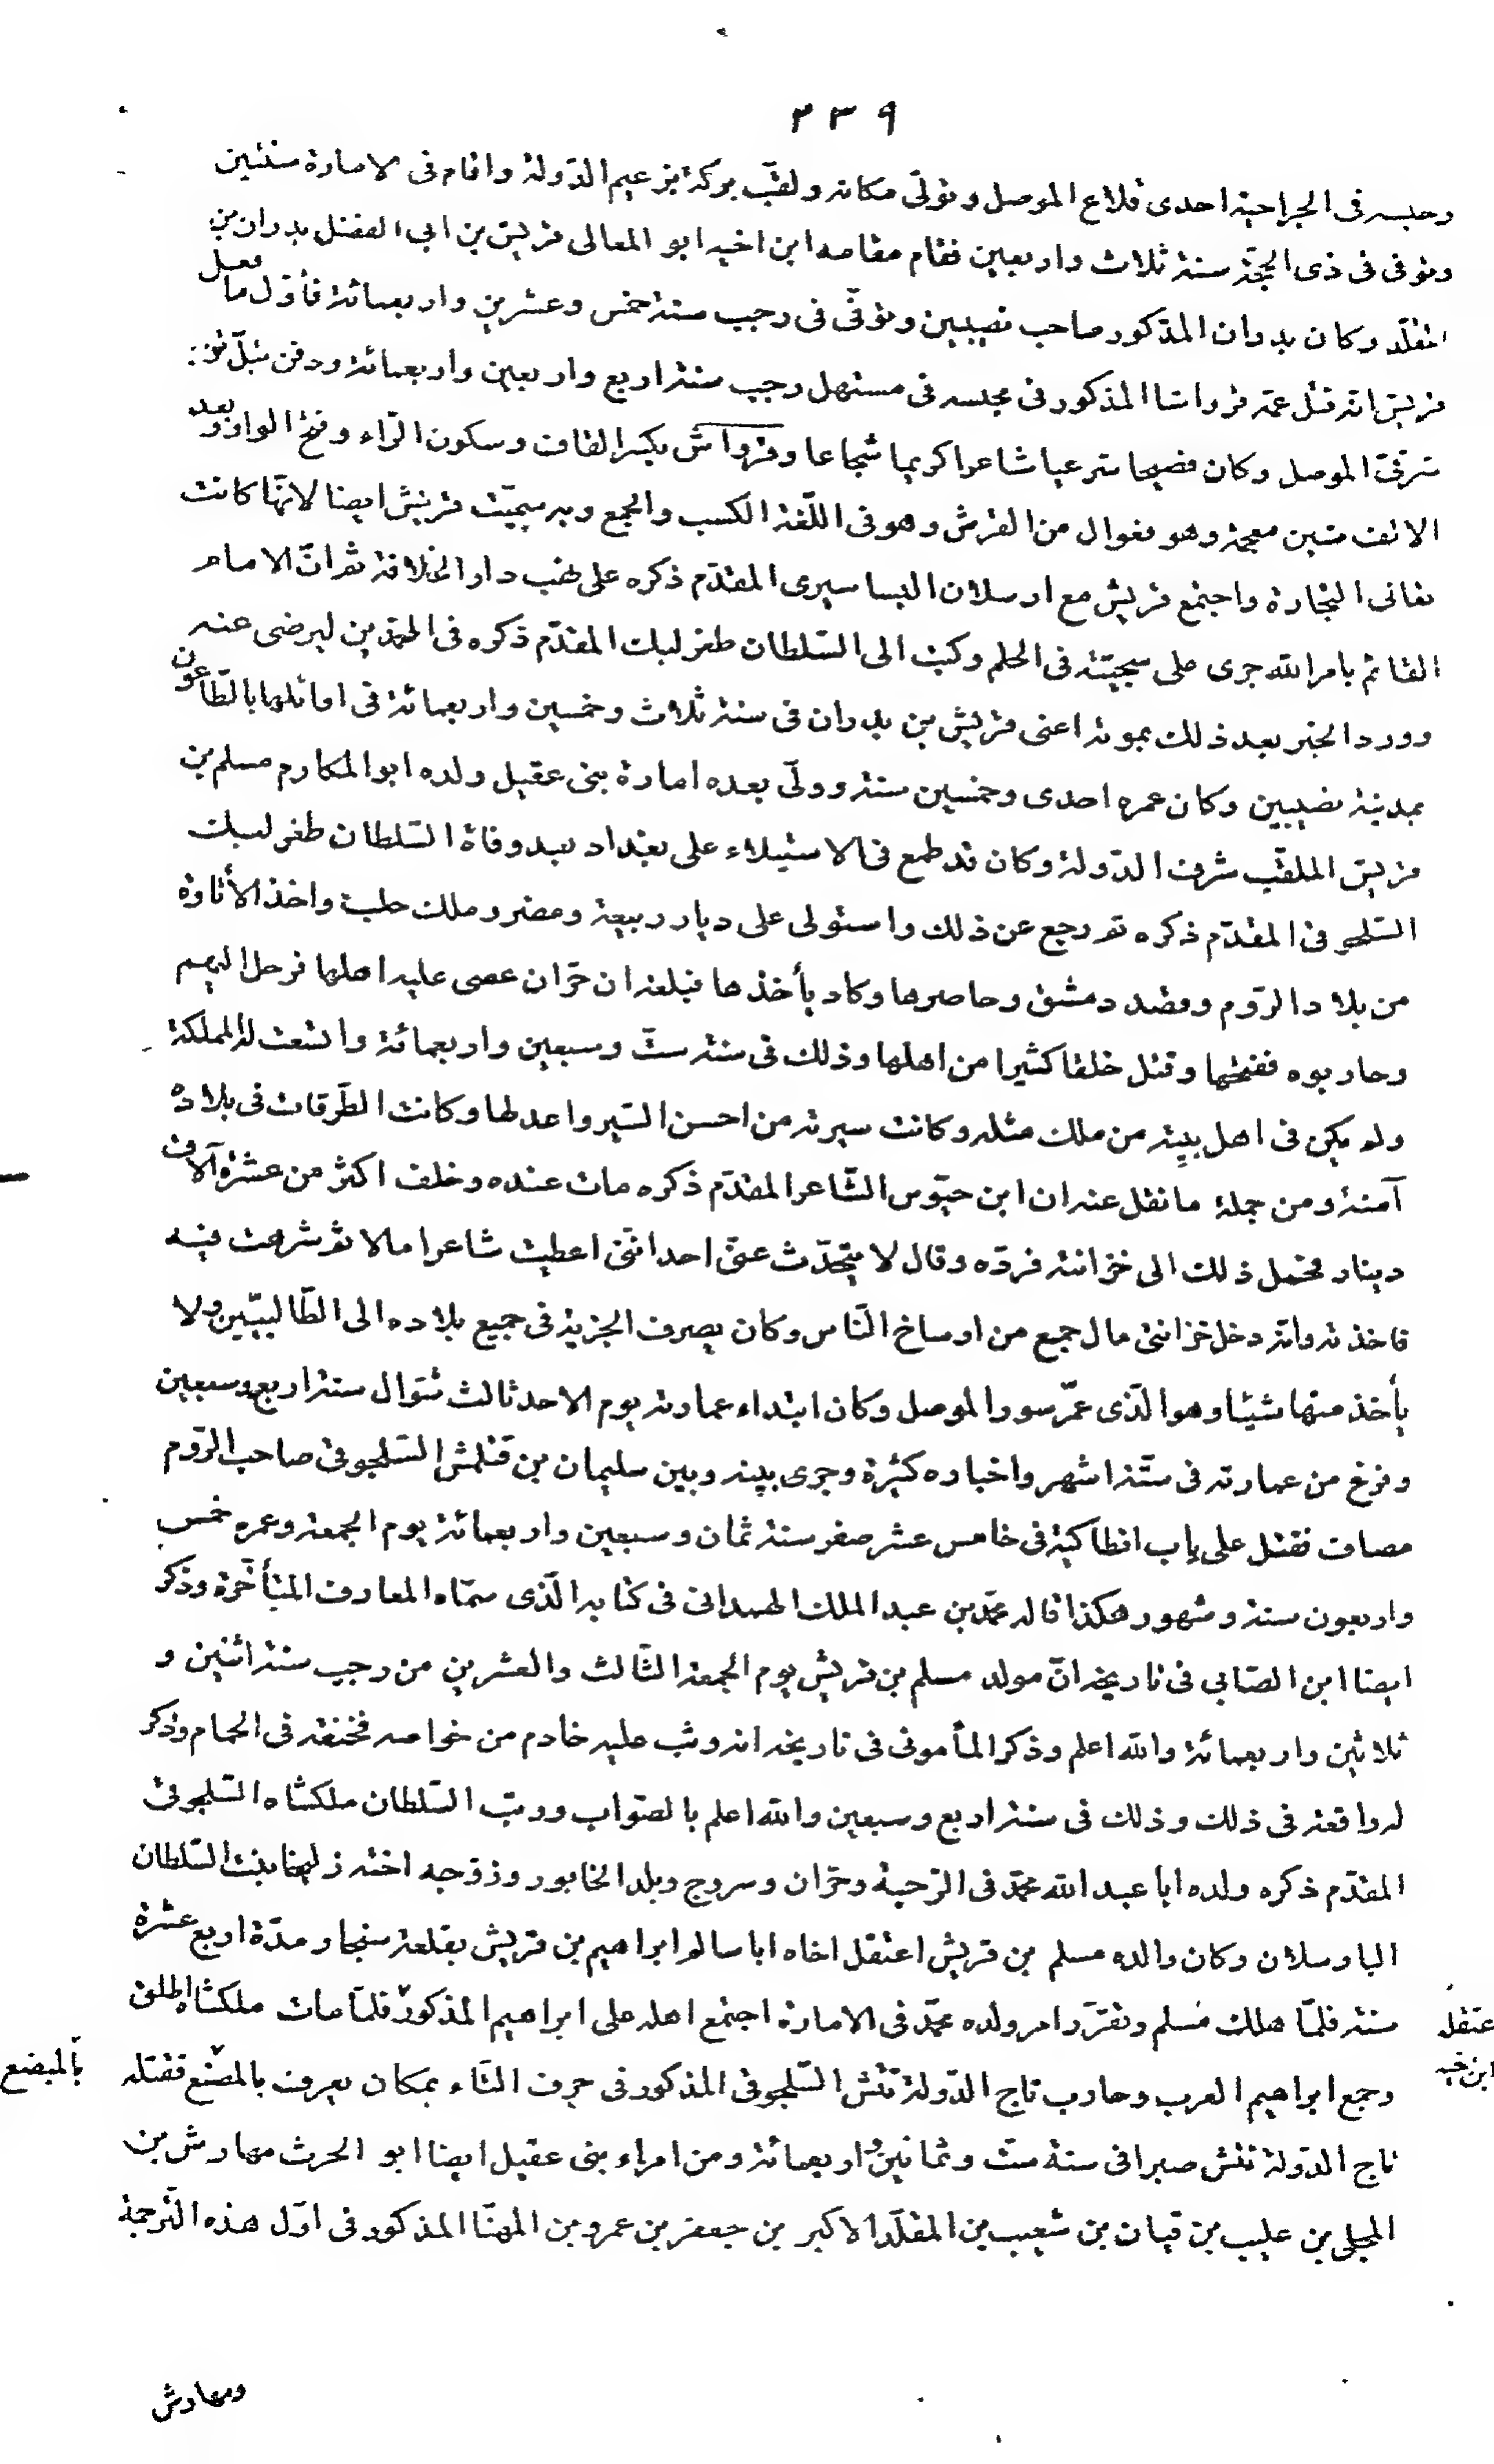 ٣٣٩
وحبسه فى الجراحية احدى قلاع الموصل وتولّى مكانه ولقّب بركة بزعيم الدّولة واقام فى الامارة سنتين
وتوفى فى ذى الحجّة سنة ثلاث واربعين فقام مقامه ابن اخيه ابو المعالى قريش بن ابى الفضل بدران بن
المقلّد وكان بدران المذكور صاحب نصيبين وتوفّى فى رجب سنة خمس وعشرين واربعمائة فأوّل ما فعل
قريش انّه قتل عمّه قرواشا المذكور فى مجلسه فى مستهل رجب سنة اربع واربعين واربعمائة ودفن بتلّ توبة
شرقىّ الموصل وكان فصيحا شاعرا كريما شجاعا وقرواش بكسر القاف وسكون الرّاء وفتح الواو وبعد
الالف شين معجمة وهو فعوال من القرش وهو فى اللّغة الكسب والجمع وبه سمّيت قريش ايضا لانّها كانت
تعانى التجارة واجتمع قريش مع ارسلان البساسيرى المقدّم ذكره على نهب دار الخلافة ثم انّ الامام
القائم بامر الله جرى على سجيّته فى الحلم وكتب الى السّلطان طغرلبك المقدّم ذكره فى المحمّدين ليرضى عنه
وورد الخبر بعد ذلك بموته اعنى قريش بن بدران فى سنة ثلاث وخمسين واربعمائة فى اوائلها بالطّاعون
بمدينة نصيبين وكان عمره احدى وخمسين سنة وولّى بعده امارة بنى عقيل ولده ابو المكارم مسلم بن
قريش الملقّب شرف الدّولة وكان قد طمع فى الاستيلاء على بغداد بعد وفاة السّلطان طغرلبك
السّلجوقى المقدّم ذكره ثم رجع عن ذلك واستولى على ديار ربيعة ومضر وملك حلب واخذ الأتاوة
من بلاد الرّوم وقصد دمشق وحاصرها وكاد يأخذها فبلغه ان حرّان عصى عليه اهلها فرحل اليهم
وحاربوه ففتحها وقتل خلقا كثيرا من اهلها وذلك فى سنة ستّ وسبعين واربعمائة واتّسعت له المملكة
ولم يكن فى اهل بيته من ملك مثله وكانت سيرته من احسن السّير واعدلها وكانت الطّرقات فى بلاده
آمنة ومن جملة ما نقل عنه ان ابن حيّوس الشّاعر المقدّم ذكره مات عنده وخلف اكثر من عشرة آلاف
دينار فحمل ذلك الى خزانته فردّه وقال لا يتحدّث عنّى احد انّنى اعطيت شاعرا مالا ثم شرهت فيه
فاخذته وانّه دخل خزانتى مال جمع من اوساخ النّاس وكان يصرف الجزية فى جميع بلاده الى الطّالبيّين ولا
يأخذ منها شيئا وهو الّذى عمّر سور الموصل وكان ابتداء عمارته يوم الاحد ثالث شوّال سنة اربع وسبعين
وفرغ من عمارته فى ستّة اشهر واخباره كثيرة وجرى بينه وبين سليمان بن قتلمش السّلجوقىّ صاحب الرّوم
مصاف فقتل على باب انطاكية فى خامس عشر صفر سنة ثمان وسبعين واربعمائة يوم الجمعة وعمره خمس
واربعون سنة وشهور هكذا قاله محمّد بن عبد الملك الهمدانى فى كتابه الّذى سمّاه المعارف المتأخّرة وذكر
ايضا ابن الصّابى فى تاريخه انّ مولد مسلم بن قريش يوم الجمعة الثّالث والعشرين من رجب سنة اثنين و
ثلاثين واربعمائة والله اعلم وذكر المأمونى فى تاريخه انه وثب عليه خادم من خواصه فخنقه فى الحمام وذكر
له واقعة فى ذلك وذلك فى سنة اربع وسبعين والله اعلم بالصّواب ورتّب السّلطان ملكشاه السّلجوقىّ
المقدّم ذكره ولده ابا عبد الله محمّد فى الرّحبة وحرّان وسروج وبلد الخابور وزوّجه اخته زليخا بنت السّلطان
الب ارسلان وكان والده مسلم بن قريش اعتقل اخاه ابا سالم ابراهيم بن قريش بقلعة سنجار مدّة اربع عشرة
سنة فلمّا هلك مسلم وتقرّر امر ولده محمّد فى الامارة اجتمع اهله على ابراهيم المذكور فلمّا مات ملكشاه اطلق
عتقل
ابن خيه
وجمع ابراهيم العرب وحارب تاج الدّولة تتش السّلجوقى المذكور فى حرف التّاء بمكان يعرف بالمصنّع فقتله
بالمبضع
تاج الدّولة تتش صبرا فى سنة ستّ وثمانين واربعمائة ومن امراء بنى عقيل ايضا ابو الحرث مهارش بن
المجلى بن عليب بن قيان بن شعيب بن المقلّد الاكبر بن جعفر بن عمرو بن المهنّا المذكور فى اوّل هذه التّرجمة
ومهارش